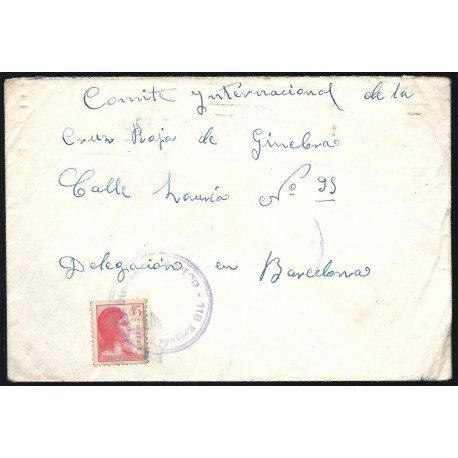 Comite Ynternacional de la
Cruz Roja de Ginebra
Calle Lauria Nº 95
Delegación en Barcelona
45
118 Brigada